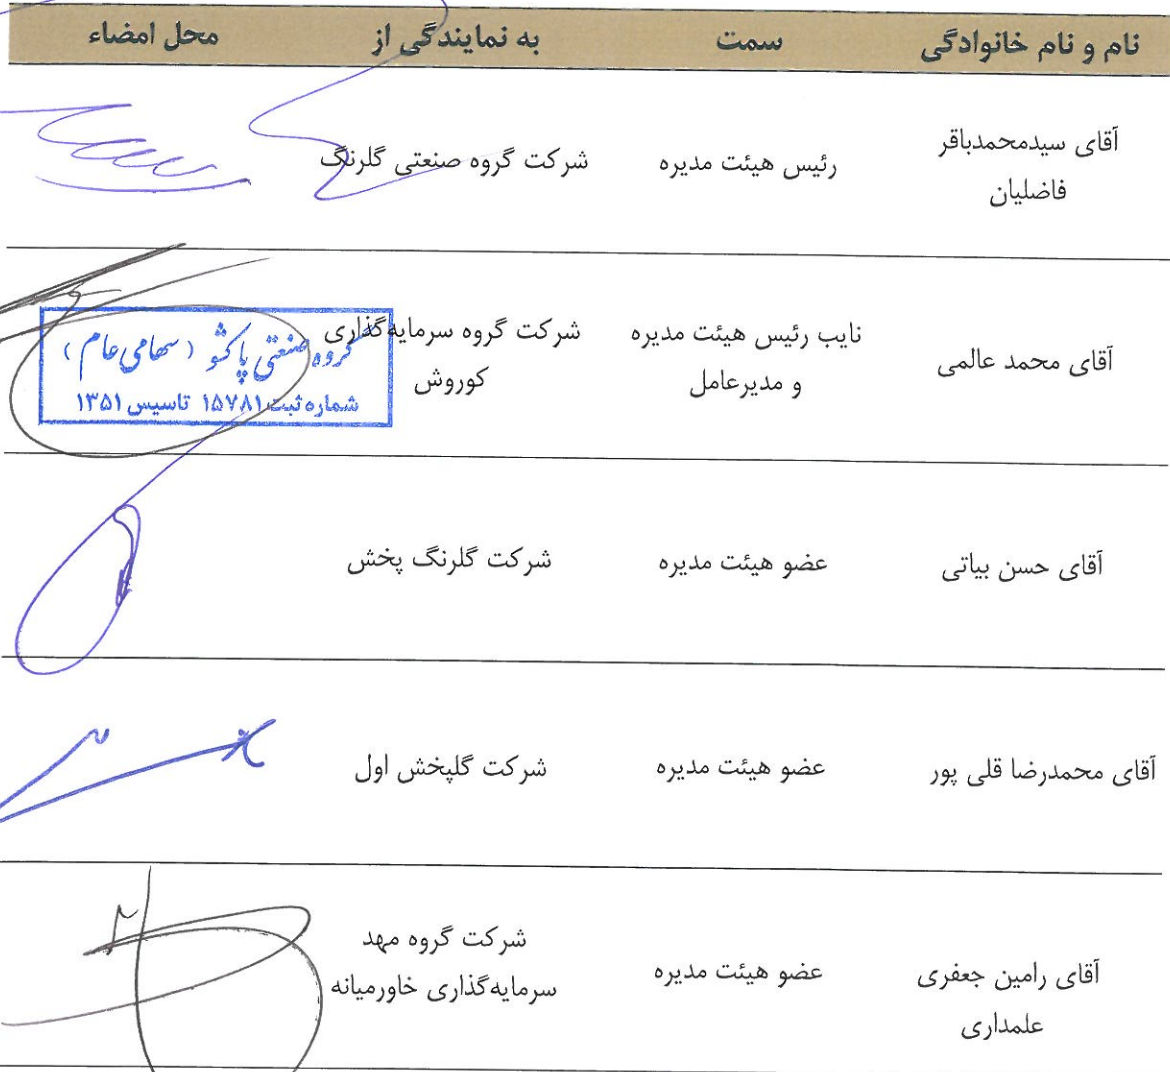 نام و نام خانوادگی سمت به نمایندگی از محل امضاء
آقای سیدمحمدباقر
فاضلیان
رئیس هیئت مدیره
شرکت گروه صنعتی گلرنگ
آقای محمد عالمی
نایب رئیس هیئت مدیره
و مدیرعامل
شرکت گروه سرمایه‌گذاری
کوروش
گروه صنعتی پاکشو (سهامی عام)
شماره ثبت ۱۵۷۸۱ تاسیس ۱۳۵۱
آقای حسن بیاتی
عضو هیئت مدیره
شرکت گلرنگ پخش
آقای محمدرضا قلی پور
عضو هیئت مدیره
شرکت گلپخش اول
آقای رامین جعفری
علمداری
عضو هیئت مدیره
شرکت گروه مهد
سرمایه‌گذاری خاورمیانه